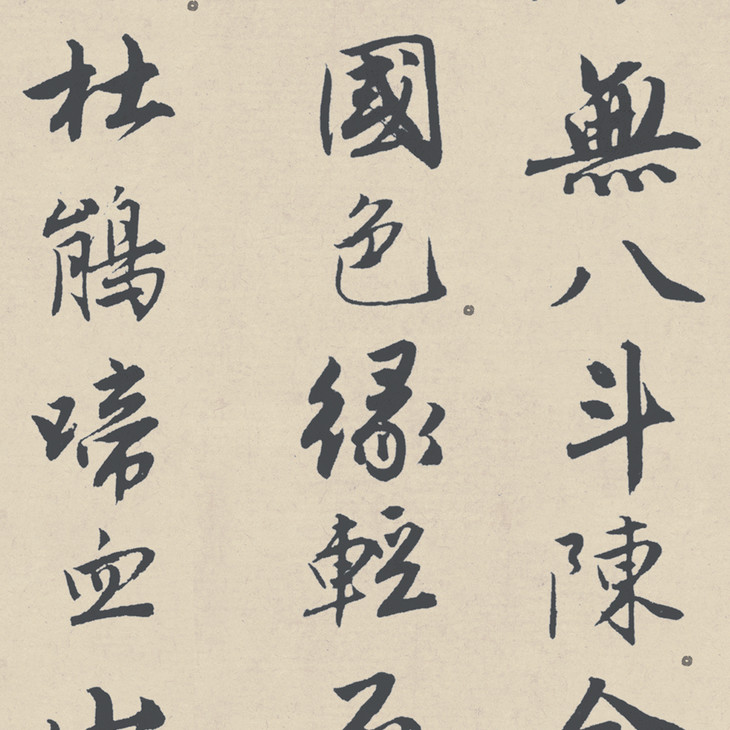 無八斗陳
國色緣輕
杜鵑啼血